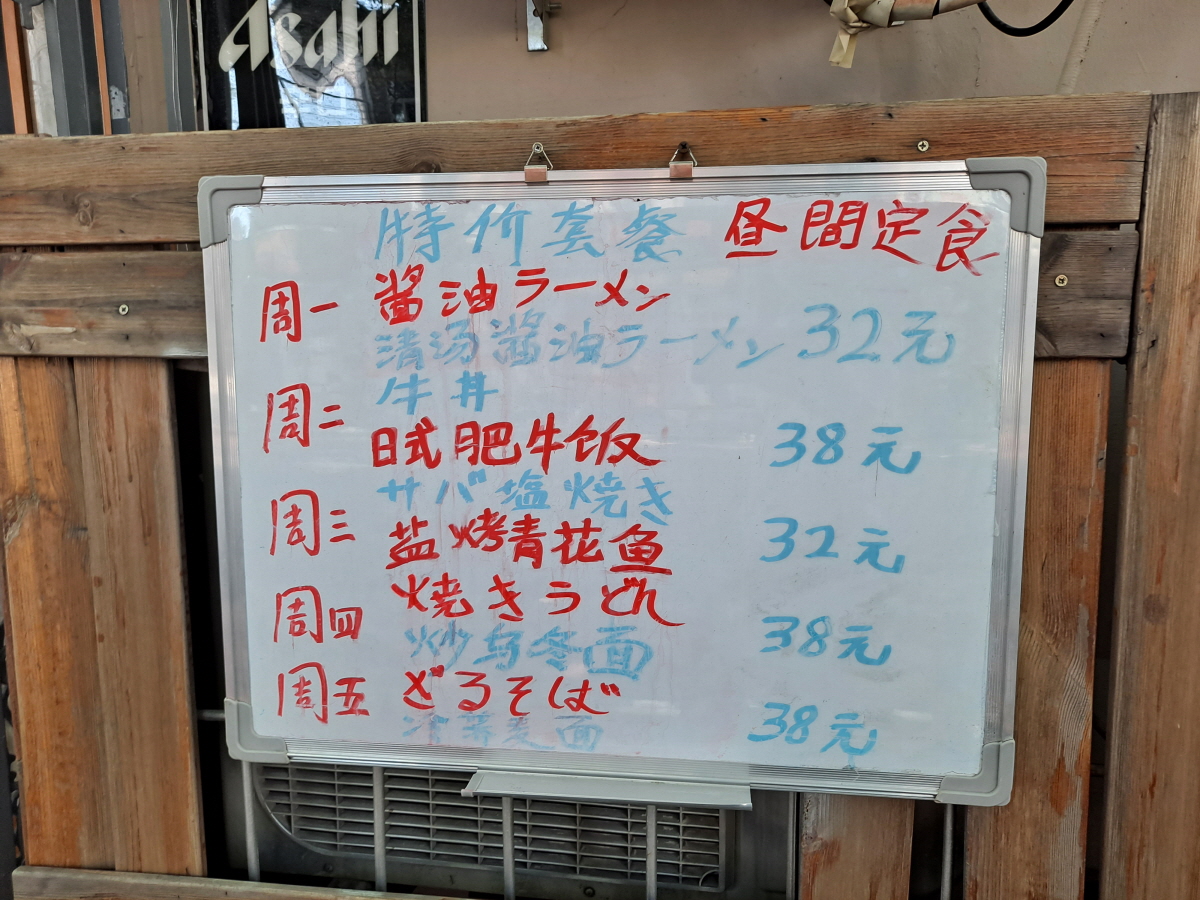 Asahi
特价套餐 昼間定食
周一 酱油ラーメン
清汤酱油ラーメン 32元
周二 牛丼
日式肥牛饭 38元
サバ塩焼き
周三 盐烤青花鱼 32元
焼きうどん
周四 炒乌冬面 38元
周五 ざるそば
冷荞麦面 38元